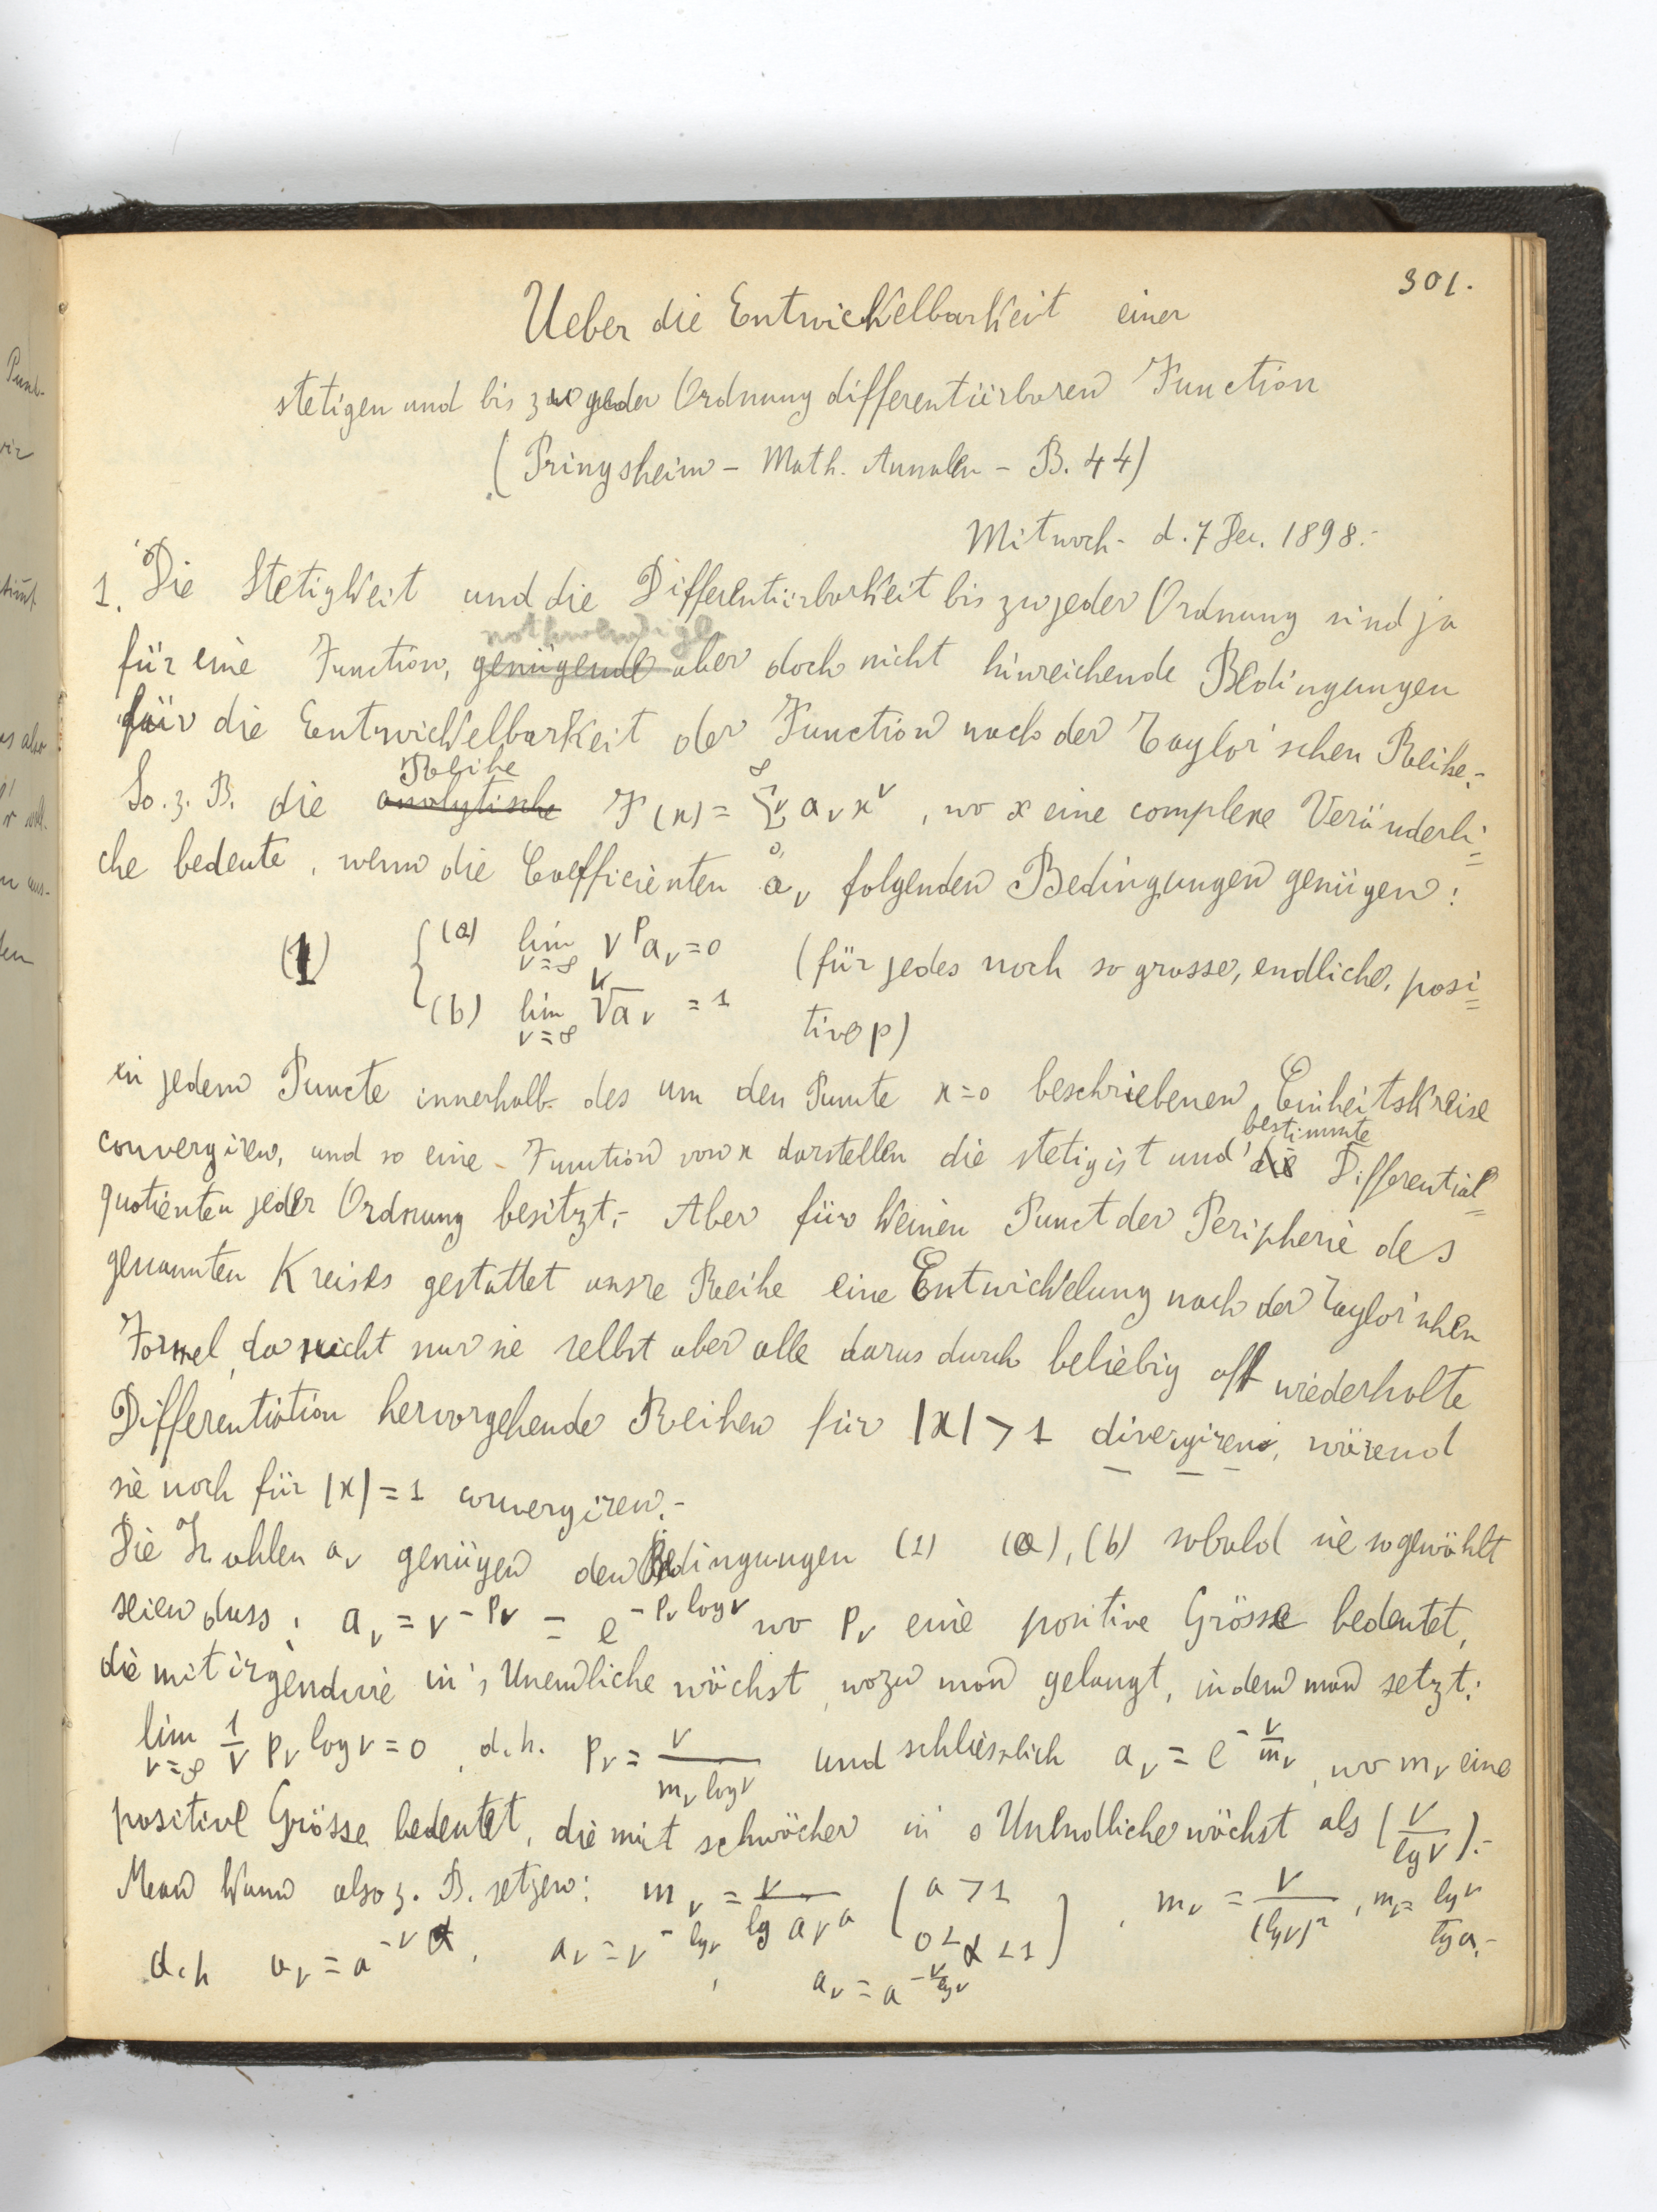 301.
Ueber die Entwickelbarkeit einer
stetigen und bis zu jeder Ordnung differentiirbaren Function
(Pringsheim – Math. Annalen – B. 44)
Mitwoch - d. 7 Dec. 1898.-
1. Die Stetigkeit und die Differentiirbarkeit bis zu jeder Ordnung sind ja
nothwendige
für eine Function, genügende aber doch nicht hinreichende Bedingungen
für die Entwickelbarkeit der Function nach der Taylor'schen Reihe.-
Reihe
So. z. B. die analytische F(x) = ∑_0^∞ν a_ν x^ν , wo x eine complexe Veränderli=
che bedeute, wenn die Coefficienten a_ν folgenden Bedingungen genügen:
(1) { (a) lim_{ν=∞} ν^p a_ν = 0 (für jedes noch so grosse, endliche, posi=
(b) lim_{ν=∞} ^ν√a_ν = 1 tive p)
in jedem Puncte innerhalb des um den Puncte x=0 beschriebenen Einheitskreise
bestimmte
convergiren, und so eine Function von x darstellen die stetig ist und die Differential=
quotienten jeder Ordnung besitzt.- Aber für keinen Punct der Peripherie des
genannten Kreises gestattet unsre Reihe eine Entwickelung nach der Taylor'schen
Formel, da nicht nur sie selbst aber alle darus durch beliebig oft wiederholte
Differentiation hervorgehende Reihen für |x| > 1 divergiren, wärend
sie noch für |x| = 1 convergiren.-
Die Zahlen a_ν genügen den Bedingungen (1) (a), (b) sobald sie so gewählt
seien dass: a_ν = ν^{-p_ν} = e^{-p_ν log ν} wo p_ν eine positive Grösse bedeutet,
die mit irgendwie in's Unendliche wächst, wozu man gelangt, indem man setzt:
lim_{ν=∞} 1/ν p_ν log ν = 0, d.h. p_ν = ν/(m_ν log ν) und schliesslich a_ν = e^{-ν/m_ν}, wo m_ν eine
positive Grösse bedeutet, die mit schwächer in's Unendliche wächst als (ν/lg ν).-
Man kann also z. B. setzen: m_ν = ν/(lg a ν^α) (a > 1 0 < α < 1), m_ν = ν/(lg ν)^2, m_ν = lg ν/lg a.-
d.h a_ν = a^{-ν^α}, a_ν = ν^{-lg ν}, a_ν = a^{-ν/lg ν}